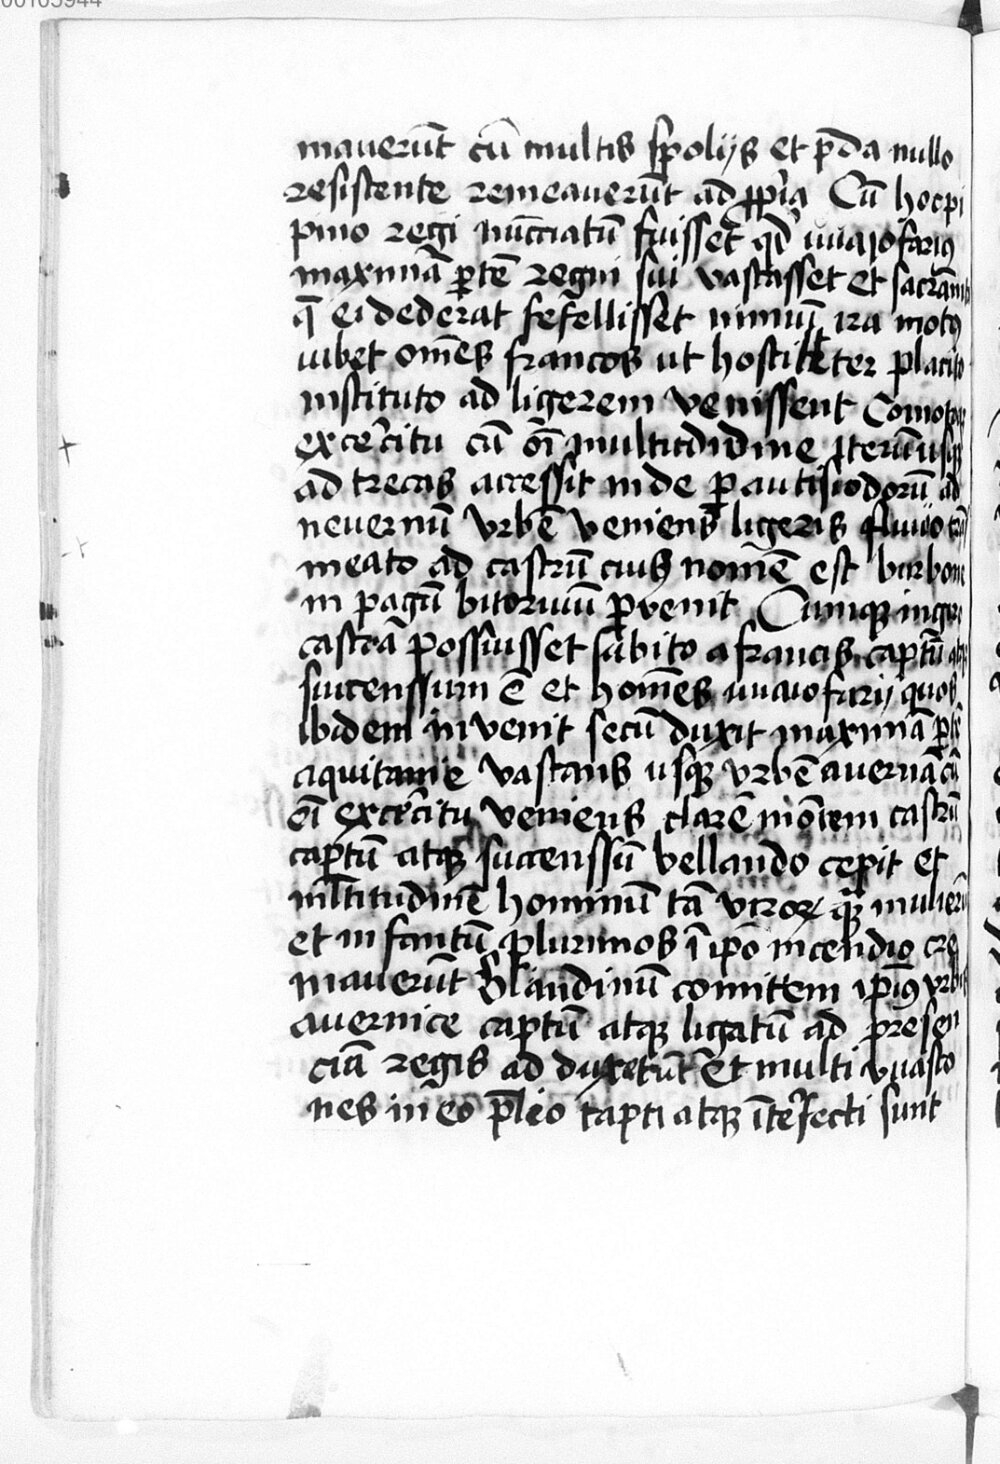 00105944
mauerūt cū multis spolijs et p̄da nullo
resistente remeauerūt ad ꝓpria Cū hoc pi
pino regi nūcciatū fuisset qd' uuaiofarius
maximā ꝑtē regni sui vastasset et sacrām̄ta
q̄ ei dederat fefellisset nimiū ira motꝰ
iubet om̄es francos ut hostiliter placito
instituto ad ligerem venissent Comoto
excercitu cū oī multitudidine iterū usqꝫ
ad trecas accessit inde ꝑ autisiodorū ad
neuernū vrbē veniens ligeris fluuio trās
meato ad castrū cuiꝰ nomē est burbone
in pagū bitoriuū ꝑvenit Cumqꝫ in gyro
castra possuisset subito a francis captū atqꝫ
succenssum ē et hom̄es uuaiofarij quos
ibidem invenit secū duxit maximā ꝑtē
aquitanie vastans usqꝫ vrbē auernā cū
oī excercitu veniens clarē mōtem castrū
captū atqꝫ succenssū bellando cepit et
ml̄titudinē hominū tā virorꝝ qꝫ mulierū
et infantū plurimos ī ipō incendio cre
mauerūt Blandinū comittem ipiꝰ vrbis
auernice captū atqꝫ ligatū ad presen
ciā regis ad duxerūt Et multi vuasco
nes in eo p̄lio capti atqꝫ īterfecti sunt